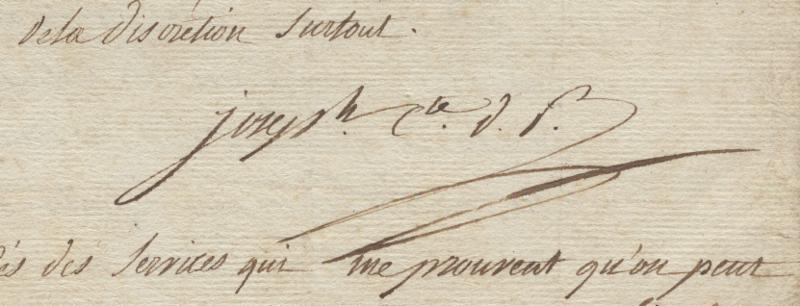 de la discrétion surtout.
joseph. cte. d. P.
és des services qui me prouvent qu'on peut